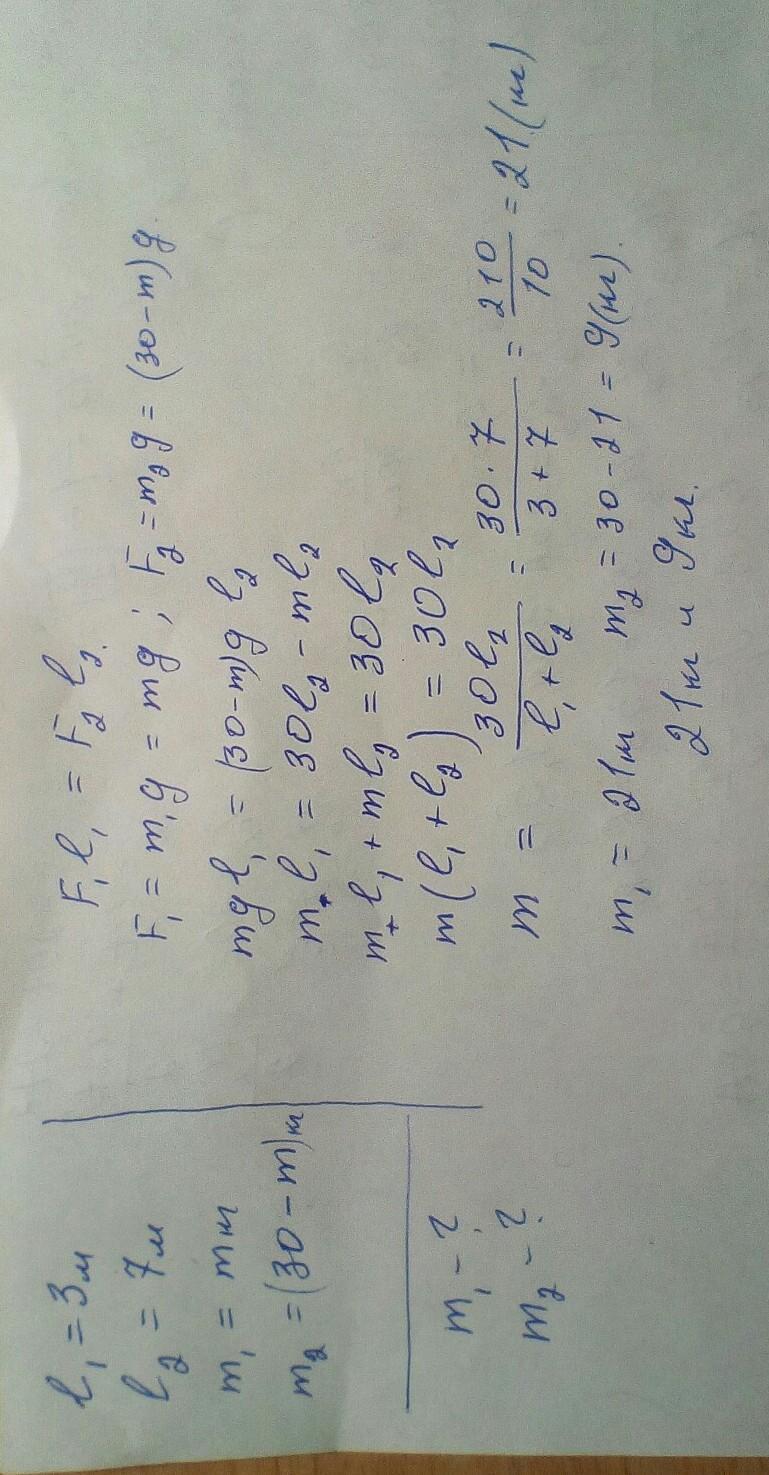 l₁ = 3м
l₂ = 7м
m₁ = m кг
m₂ = (30 - m) кг
m₁ - ?
m₂ - ?
F₁l₁ = F₂l₂.
F₁ = m₁g = mg ; F₂ = m₂g = (30 - m)g.
mgl₁ = (30 - m)g l₂
m l₁ = 30l₂ - ml₂
m l₁ + ml₂ = 30l₂
m(l₁ + l₂) = 30l₂
m = 30l₂/(l₁ + l₂) = 30·7/(3 + 7) = 210/10 = 21 (кг)
m₁ = 21кг m₂ = 30 - 21 = 9(кг).
21кг и 9кг.